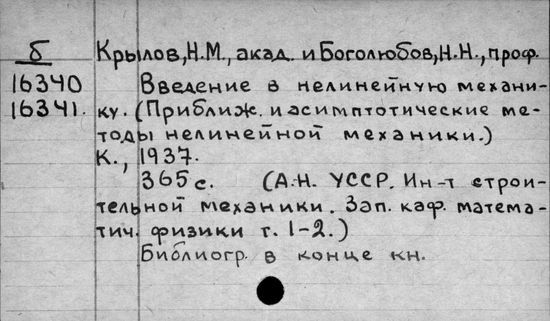 б Крылов, Н.М., акад. и Боголюбов, Н.Н., проф.
16340 Введение в нелинейную механи-
16341. ку. (Приближ. и асимптотические ме-
тоды нелинейной механики.)
К., 1937.
365 с. (А.Н. УССР. Ин-т строи-
тельной механики. Зап. каф. матема-
тич. физики т. 1-2.)
Библиогр. в конце кн.